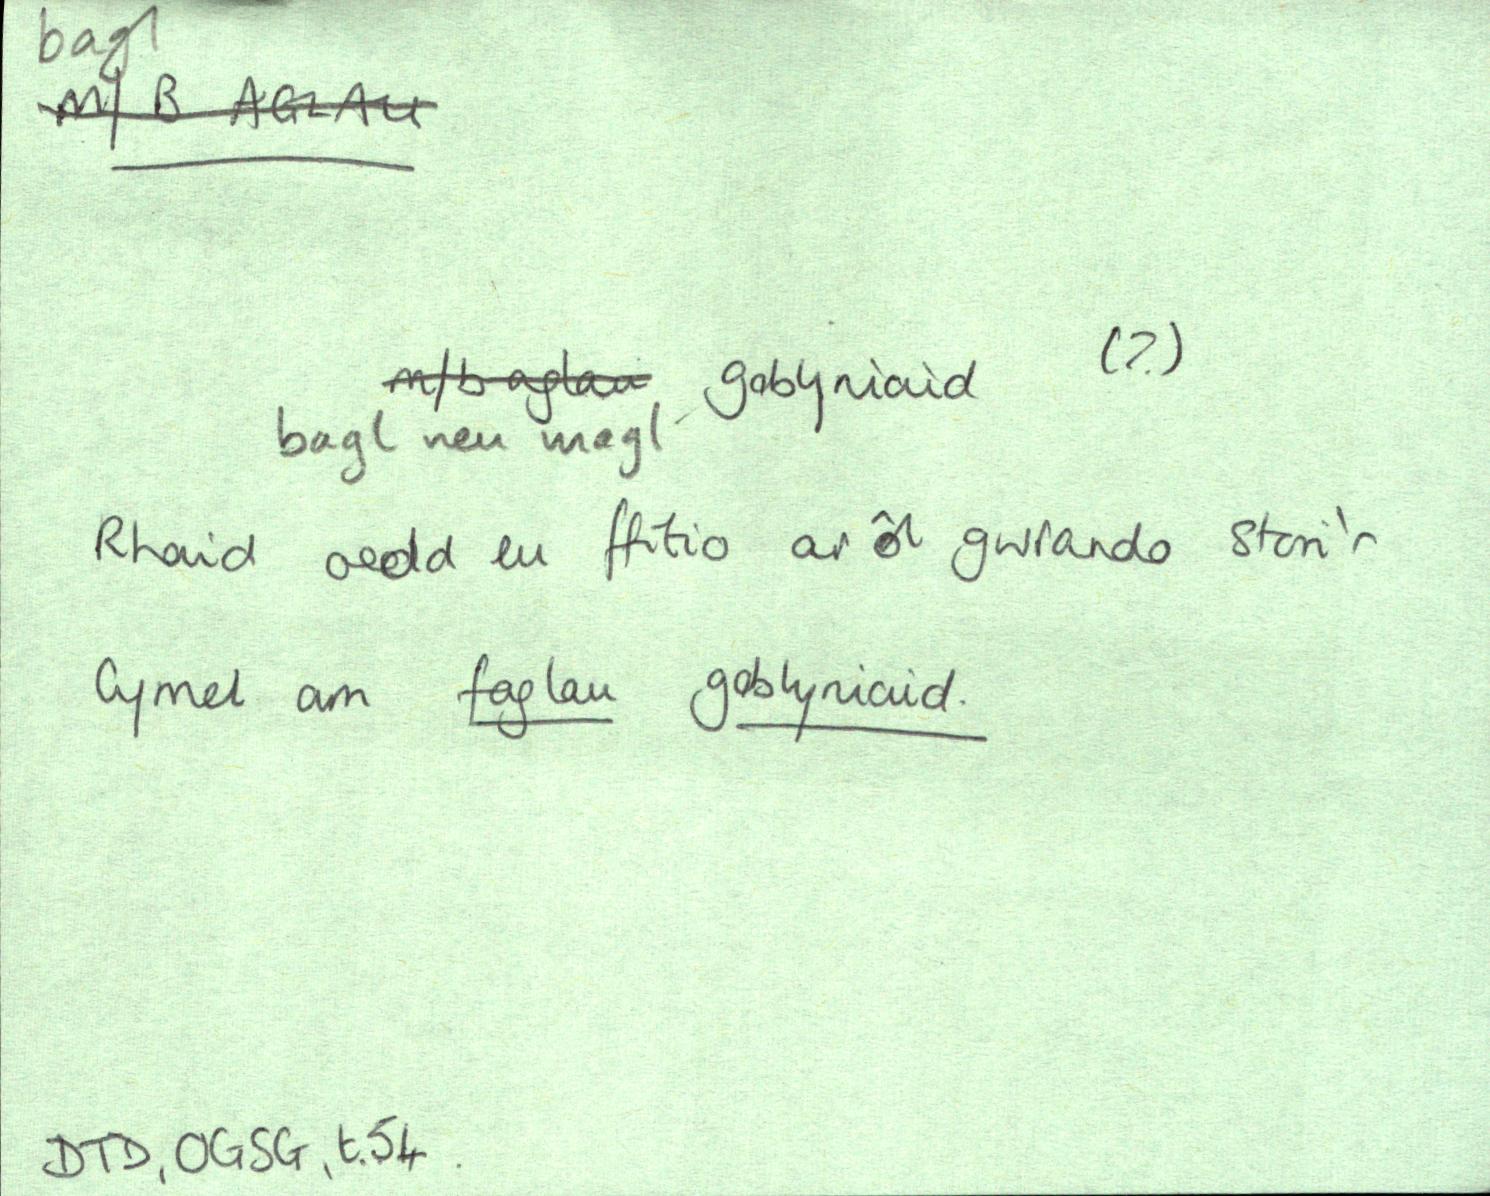 bagl
M/BAGLAU
m/baglau goblyniaid (?)
bagl neu magl
Rhaid oedd eu ffitio ar ôl gwrando stori'r
Cymel am faglau goblyniaid.
DTD, OGSG, t.54.